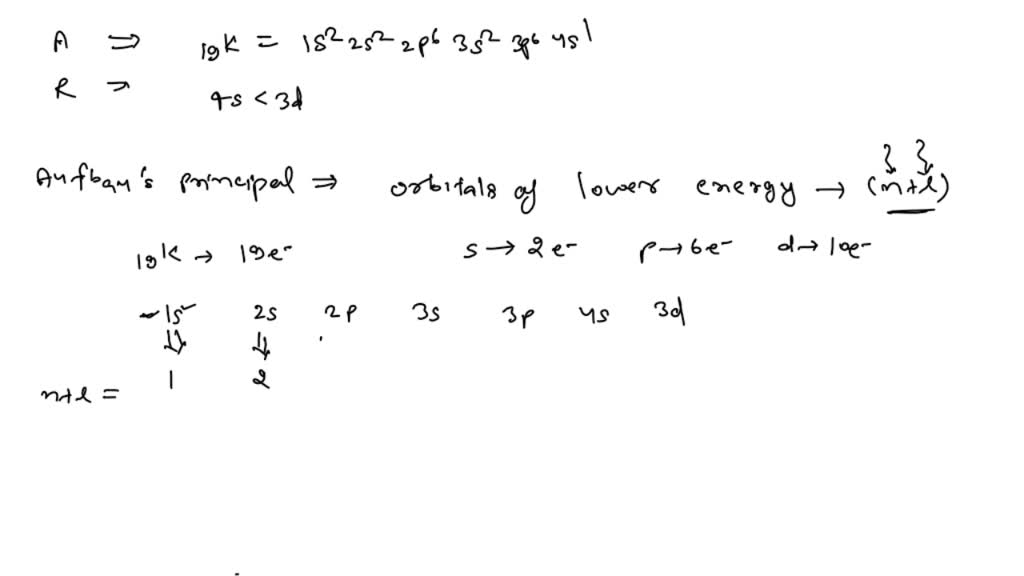 A ⇒ ₁₉K = 1s² 2s² 2p⁶ 3s² 3p⁶ 4s¹
R → 4s < 3d
Aufbau's principal ⇒ orbitals of lower energy → (n+l)
₁₉K → 19e⁻ s → 2e⁻ p → 6e⁻ d → 10e⁻
1s 2s 2p 3s 3p 4s 3d
n+l = 1 2